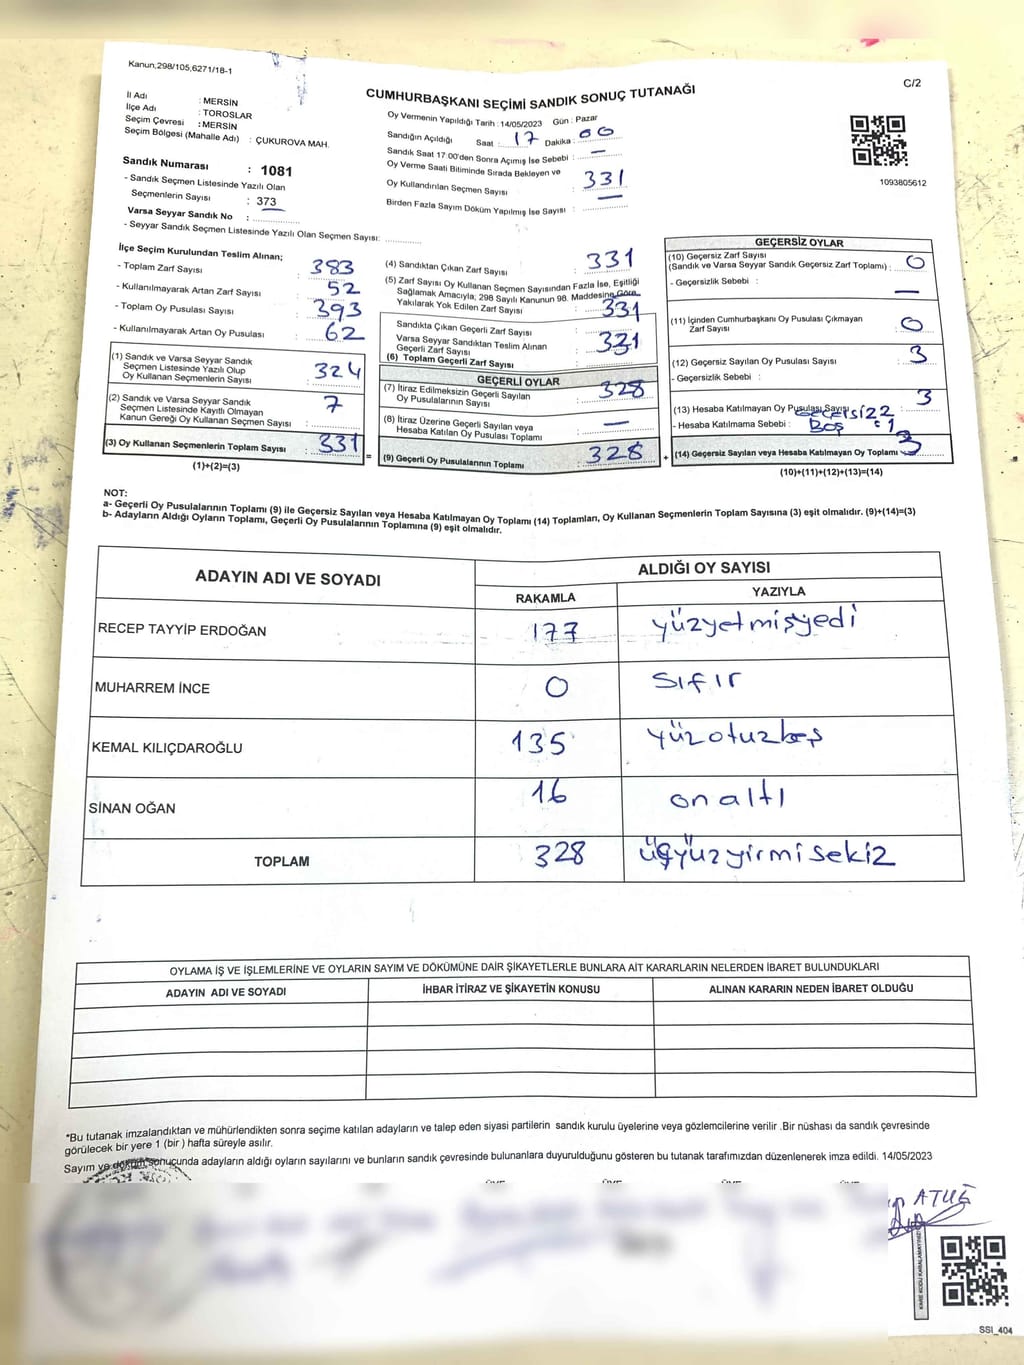 Kanun,298/105,6271/18-1
C/2
CUMHURBAŞKANI SEÇİMİ SANDIK SONUÇ TUTANAĞI
İl Adı : MERSİN
İlçe Adı : TOROSLAR
Seçim Çevresi : MERSİN
Seçim Bölgesi (Mahalle Adı) : ÇUKUROVA MAH.
Sandık Numarası : 1081
- Sandık Seçmen Listesinde Yazılı Olan
Seçmenlerin Sayısı : 373
Varsa Seyyar Sandık No :
- Seyyar Sandık Seçmen Listesinde Yazılı Olan Seçmen Sayısı:
Oy Vermenin Yapıldığı Tarih : 14/05/2023 Gün : Pazar
Sandığın Açıldığı Saat : 17 Dakika : 00
Sandık Saat 17:00'den Sonra Açımış İse Sebebi : —
Oy Verme Saati Bitiminde Sırada Bekleyen ve
Oy Kullandırılan Seçmen Sayısı : 331
Birden Fazla Sayım Döküm Yapılmış İse Sayısı : —
1093805612
İlçe Seçim Kurulundan Teslim Alınan;
- Toplam Zarf Sayısı : 383
- Kullanılmayarak Artan Zarf Sayısı : 52
- Toplam Oy Pusulası Sayısı : 393
- Kullanılmayarak Artan Oy Pusulası : 62
(1) Sandık ve Varsa Seyyar Sandık
Seçmen Listesinde Yazılı Olup
Oy Kullanan Seçmenlerin Sayısı : 324
(2) Sandık ve Varsa Seyyar Sandık
Seçmen Listesinde Kayıtlı Olmayan
Kanun Gereği Oy Kullanan Seçmen Sayısı : 7
(3) Oy Kullanan Seçmenlerin Toplam Sayısı : 331
(1)+(2)=(3)
(4) Sandıktan Çıkan Zarf Sayısı : 331
(5) Zarf Sayısı Oy Kullanan Seçmen Sayısından Fazla İse, Eşitliği
Sağlamak Amacıyla; 298 Sayılı Kanunun 98. Maddesine Göre
Yakılarak Yok Edilen Zarf Sayısı : 331
Sandıkta Çıkan Geçerli Zarf Sayısı
Varsa Seyyar Sandıktan Teslim Alınan
Geçerli Zarf Sayısı
(6) Toplam Geçerli Zarf Sayısı : 331
GEÇERLİ OYLAR
(7) İtiraz Edilmeksizin Geçerli Sayılan
Oy Pusulalarının Sayısı : 328
(8) İtiraz Üzerine Geçerli Sayılan veya
Hesaba Katılan Oy Pusulası Toplamı : —
(9) Geçerli Oy Pusulalarının Toplamı : 328
=
+
GEÇERSİZ OYLAR
(10) Geçersiz Zarf Sayısı
(Sandık ve Varsa Seyyar Sandık Geçersiz Zarf Toplamı) : 0
- Geçersizlik Sebebi : —
(11) İçinden Cumhurbaşkanı Oy Pusulası Çıkmayan
Zarf Sayısı : 0
(12) Geçersiz Sayılan Oy Pusulası Sayısı : 3
- Geçersizlik Sebebi :
(13) Hesaba Katılmayan Oy Pusulası Sayısı : 3
- Hesaba Katılmama Sebebi : Geçersiz 2
Boş : 1
(14) Geçersiz Sayılan veya Hesaba Katılmayan Oy Toplamı 3
(10)+(11)+(12)+(13)=(14)
NOT:
a- Geçerli Oy Pusulalarının Toplamı (9) ile Geçersiz Sayılan veya Hesaba Katılmayan Oy Toplamı (14) Toplamları, Oy Kullanan Seçmenlerin Toplam Sayısına (3) eşit olmalıdır. (9)+(14)=(3)
b- Adayların Aldığı Oyların Toplamı, Geçerli Oy Pusulalarının Toplamına (9) eşit olmalıdır.
ADAYIN ADI VE SOYADI
ALDIĞI OY SAYISI
RAKAMLA YAZIYLA
RECEP TAYYİP ERDOĞAN 177 yüzyetmişyedi
MUHARREM İNCE 0 sıfır
KEMAL KILIÇDAROĞLU 135 yüzotuzbeş
SİNAN OĞAN 16 onaltı
TOPLAM 328 üçyüzyirmisekiz
OYLAMA İŞ VE İŞLEMLERİNE VE OYLARIN SAYIM VE DÖKÜMÜNE DAİR ŞİKAYETLERLE BUNLARA AİT KARARLARIN NELERDEN İBARET BULUNDUKLARI
ADAYIN ADI VE SOYADI İHBAR İTİRAZ VE ŞİKAYETİN KONUSU ALINAN KARARIN NEDEN İBARET OLDUĞU
*Bu tutanak imzalandıktan ve mühürlendikten sonra seçime katılan adayların ve talep eden siyasi partilerin sandık kurulu üyelerine veya gözlemcilerine verilir .Bir nüshası da sandık çevresinde
görülecek bir yere 1 (bir ) hafta süreyle asılır.
Sayım ve döküm sonucunda adayların aldığı oyların sayılarını ve bunların sandık çevresinde bulunanlara duyurulduğunu gösteren bu tutanak tarafımızdan düzenlenerek imza edildi. 14/05/2023
KARE KODU KARALAMAYINIZ!
SSI_404